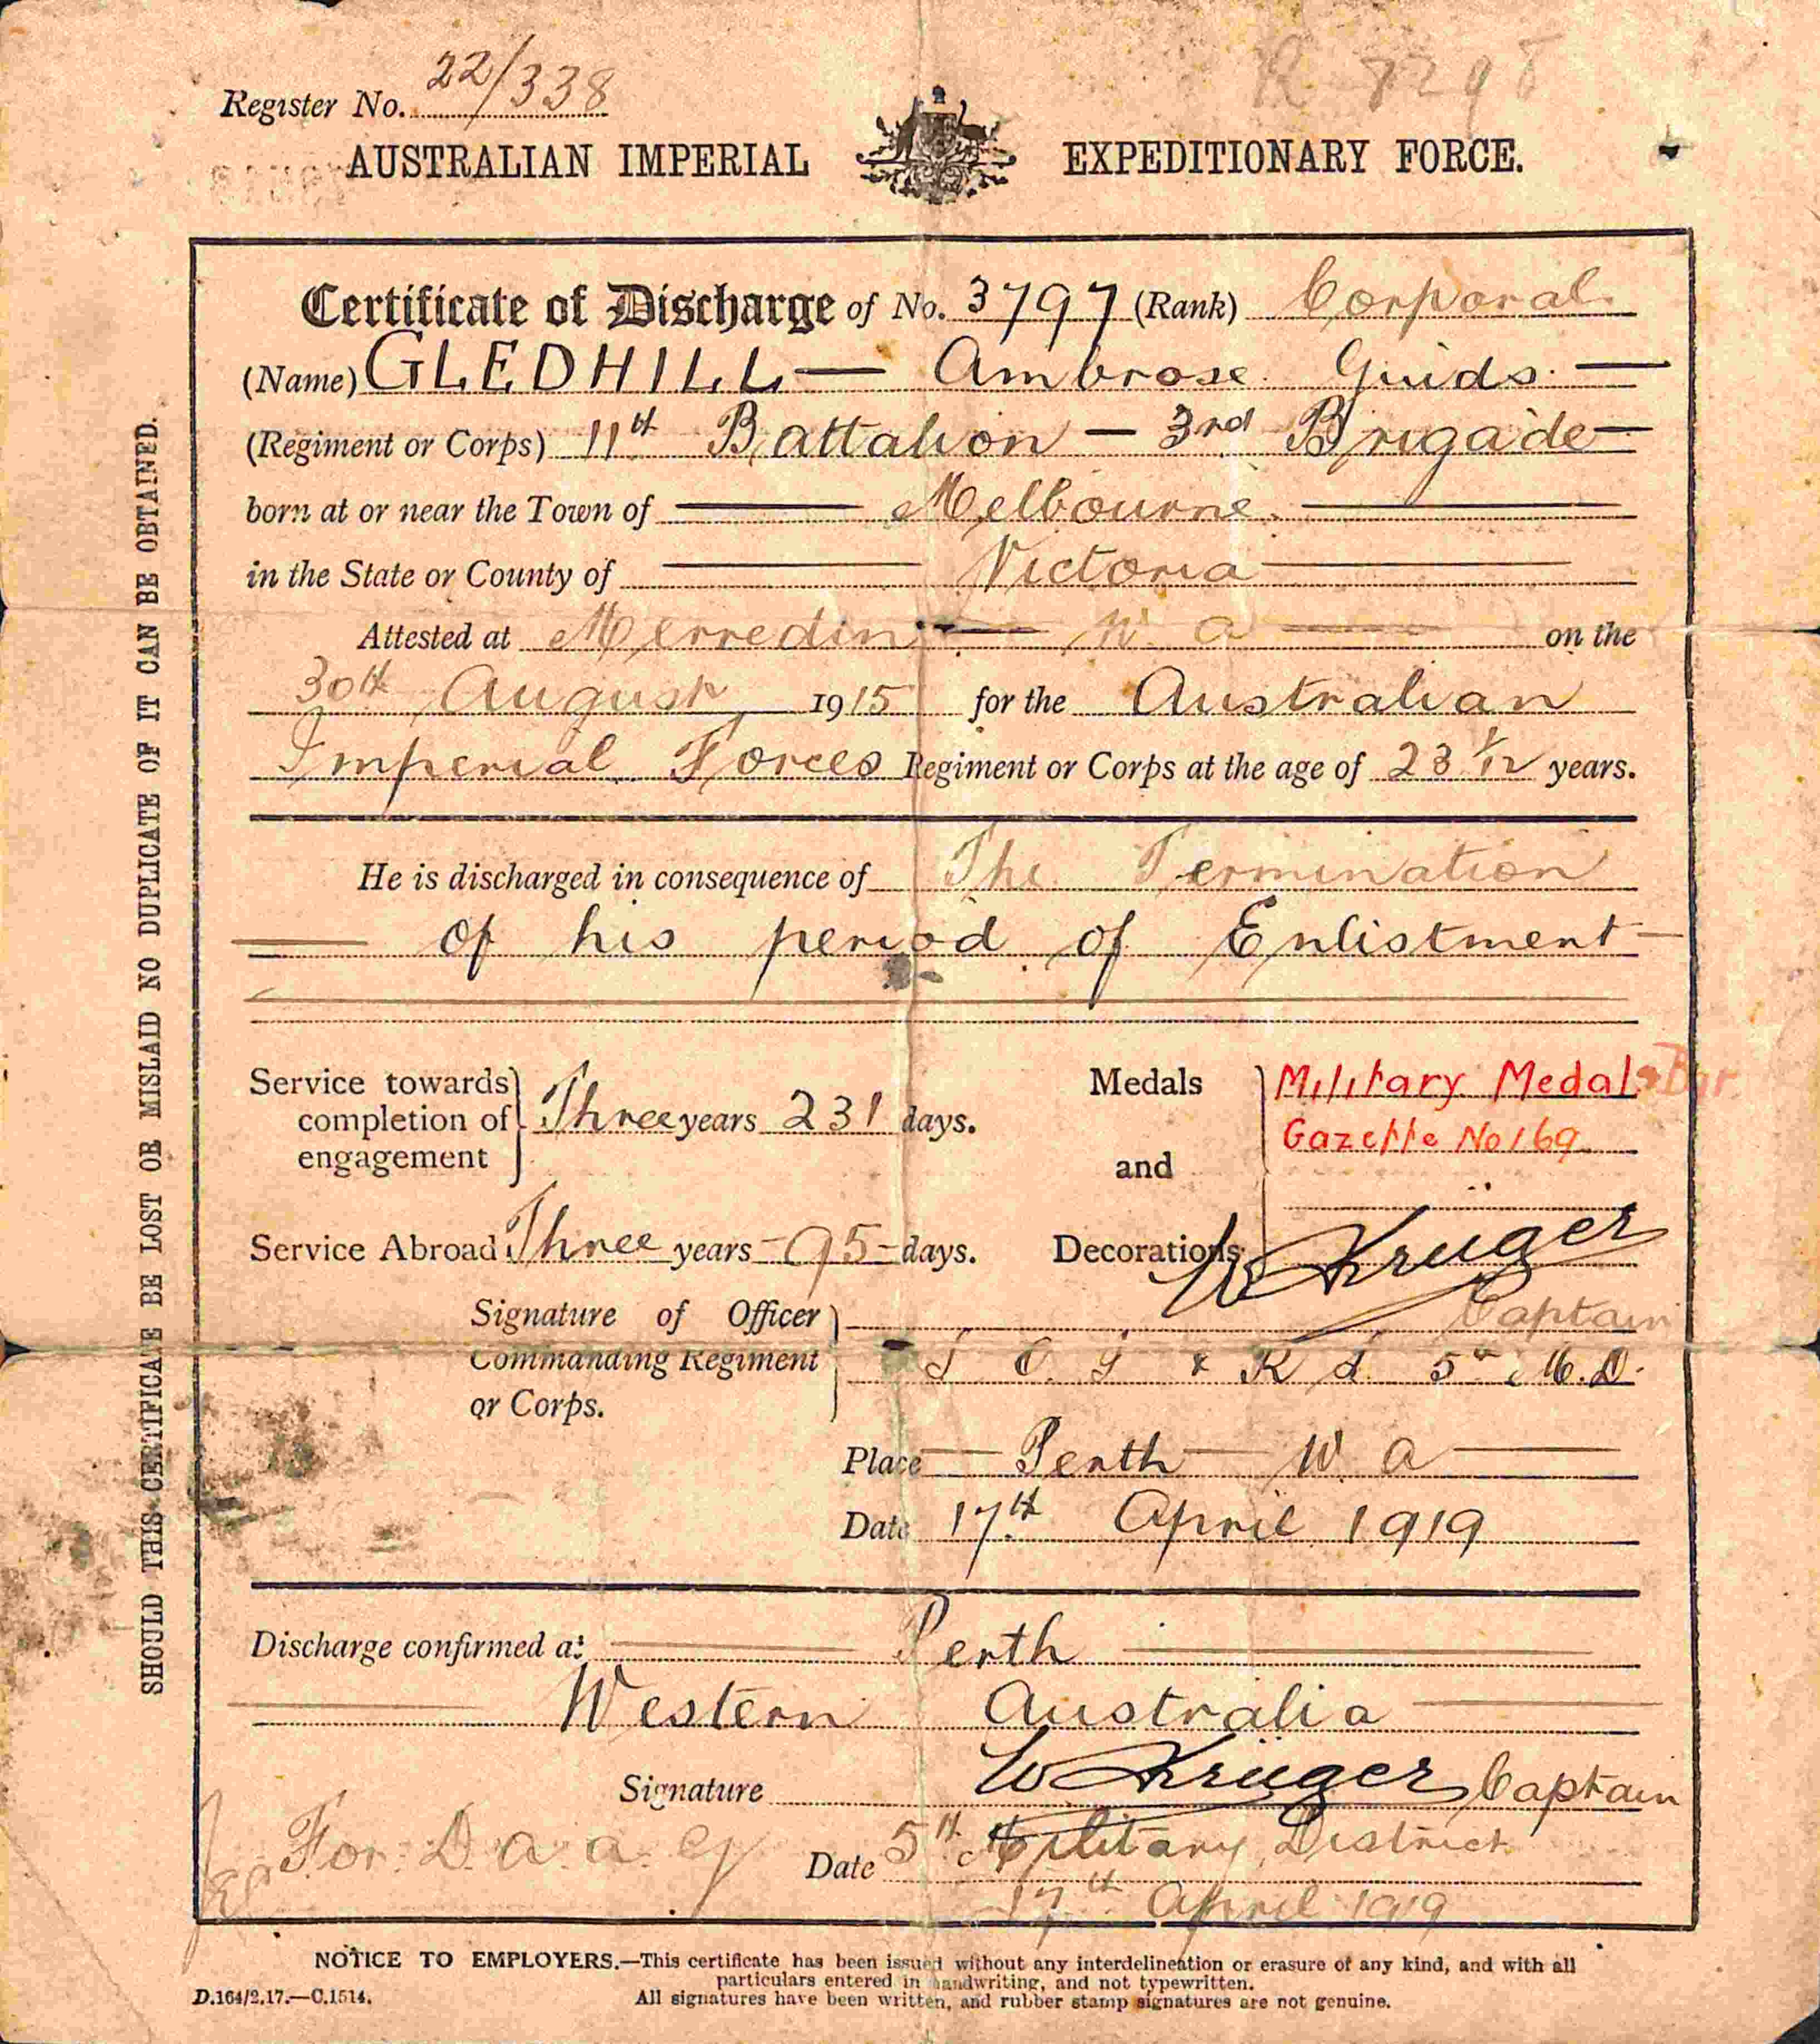 22/338
R 8298
Register No.
AUSTRALIAN IMPERIAL EXPEDITIONARY FORCE.
Certificate of Discharge of No. 3797 (Rank) Corporal
(Name) GLEDHILL — Ambrose Guido —
(Regiment or Corps) 11th Battalion — 3rd Brigade —
born at or near the Town of — Melbourne —
in the State or County of — Victoria —
Attested at Merredin — W. A — on the
30th August 1915 for the Australian
Imperial Forces Regiment or Corps at the age of 23 1/12 years.
He is discharged in consequence of The Termination
— of his period of Enlistment —
Service towards completion of engagement } Three years 231 days.
Service Abroad Three years - 95 - days.
Medals and Decorations
Military Medal & Bar.
Gazette No 169
W Krüger
Captain
Signature of Officer
Commanding Regiment
or Corps.
& R S. 5th M.D.
Place — Perth — W. A —
Date 17th April 1919
Discharge confirmed at — Perth —
— Western Australia —
Signature W Krüger Captain
For. D. a. a. G
Date 5th Military District
17th April 1919
NOTICE TO EMPLOYERS.—This certificate has been issued without any interdelineation or erasure of any kind, and with all
particulars entered in handwriting, and not typewritten.
D.164/2.17.—C.1514. All signatures have been written, and rubber stamp signatures are not genuine.
SHOULD THIS CERTIFICATE BE LOST OR MISLAID NO DUPLICATE OF IT CAN BE OBTAINED.